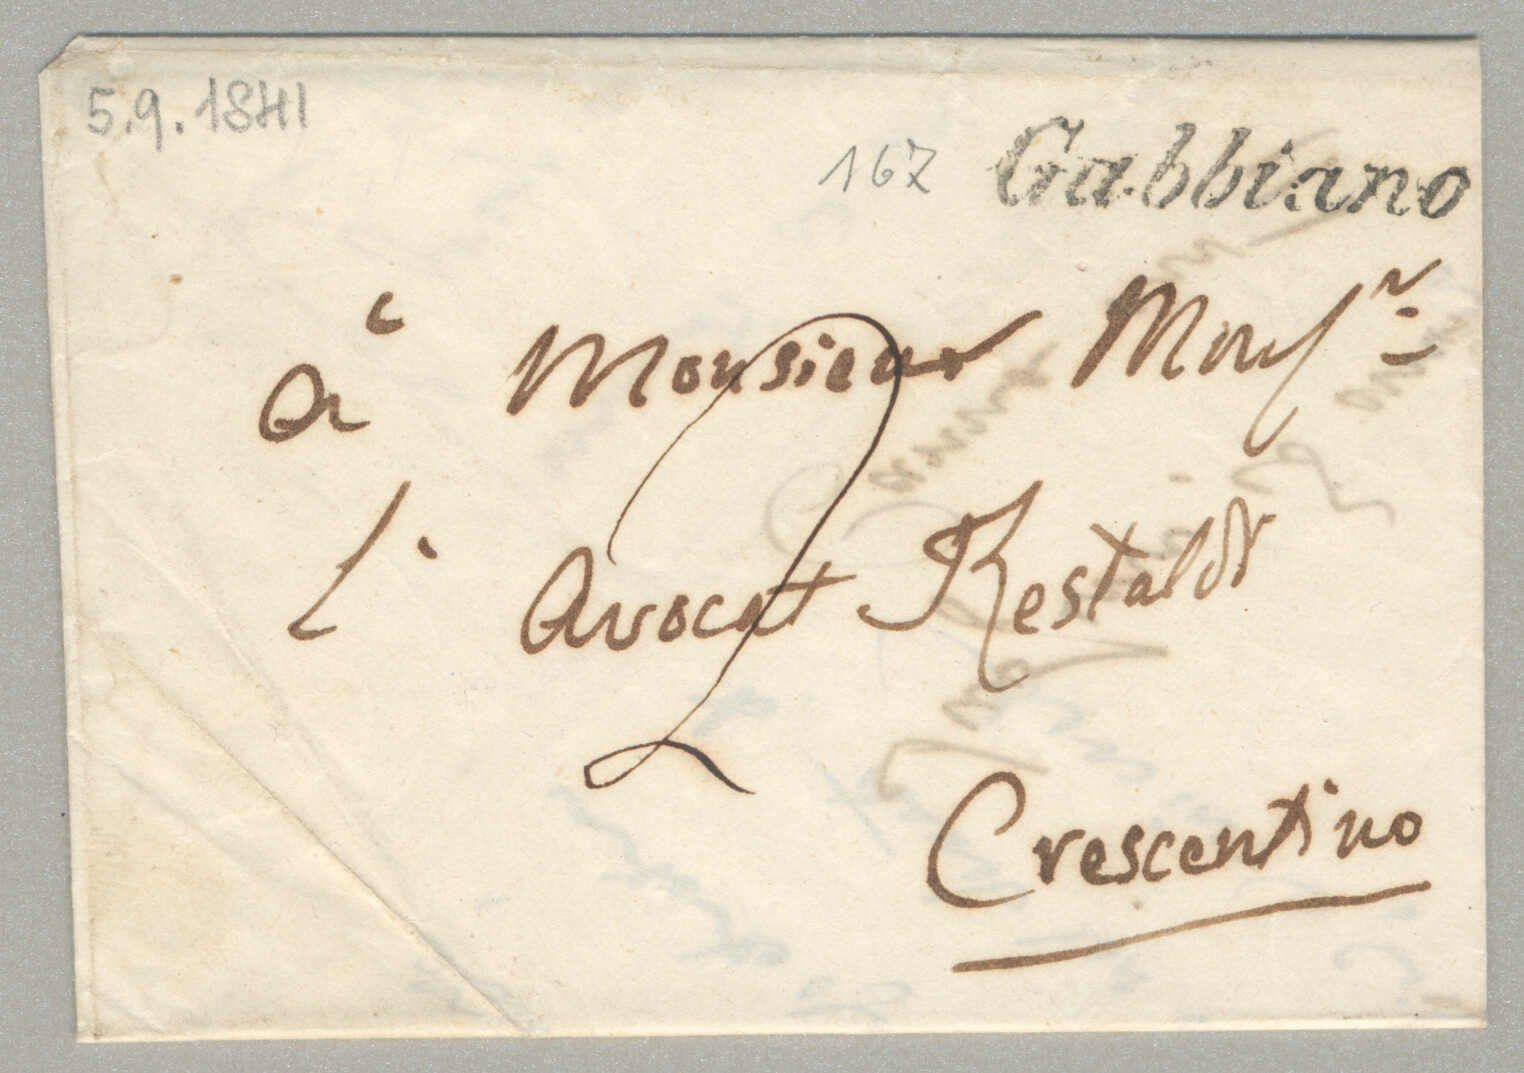 5.9.1841
167 Gabbiano
à Monsieur Monsr
2
L' Avocat Restaldi
Crescentino